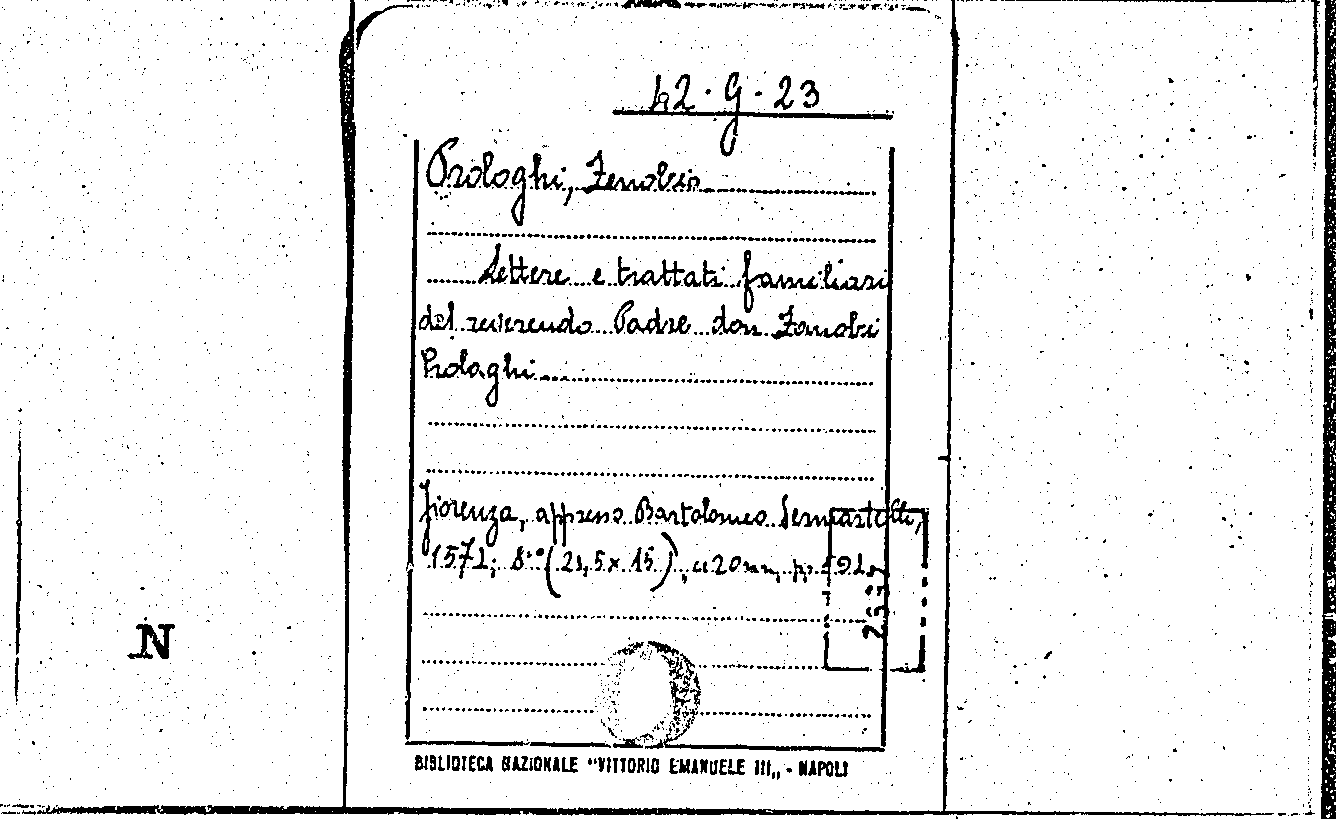 42·G·23
Prologhi, Zenobio
Lettere e trattati familiari
del reverendo Padre don Zanobi
Prolaghi
Fiorenza, appresso Bartolomeo Sermartelli,
1572; 8vo (21,5x15)
N
BIBLIOTECA NAZIONALE "VITTORIO EMANUELE III„ - NAPOLI